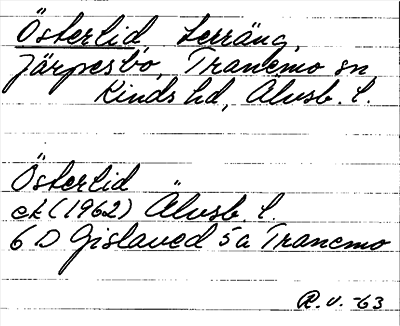 Österlid terräng,
Järpesbo, Tranemo sn,
Kinds hd, Älvsb. l.
Österlid
ek (1962) Älvsb. l.
6 D Gislaved 5a Tranemo
R.V. -63